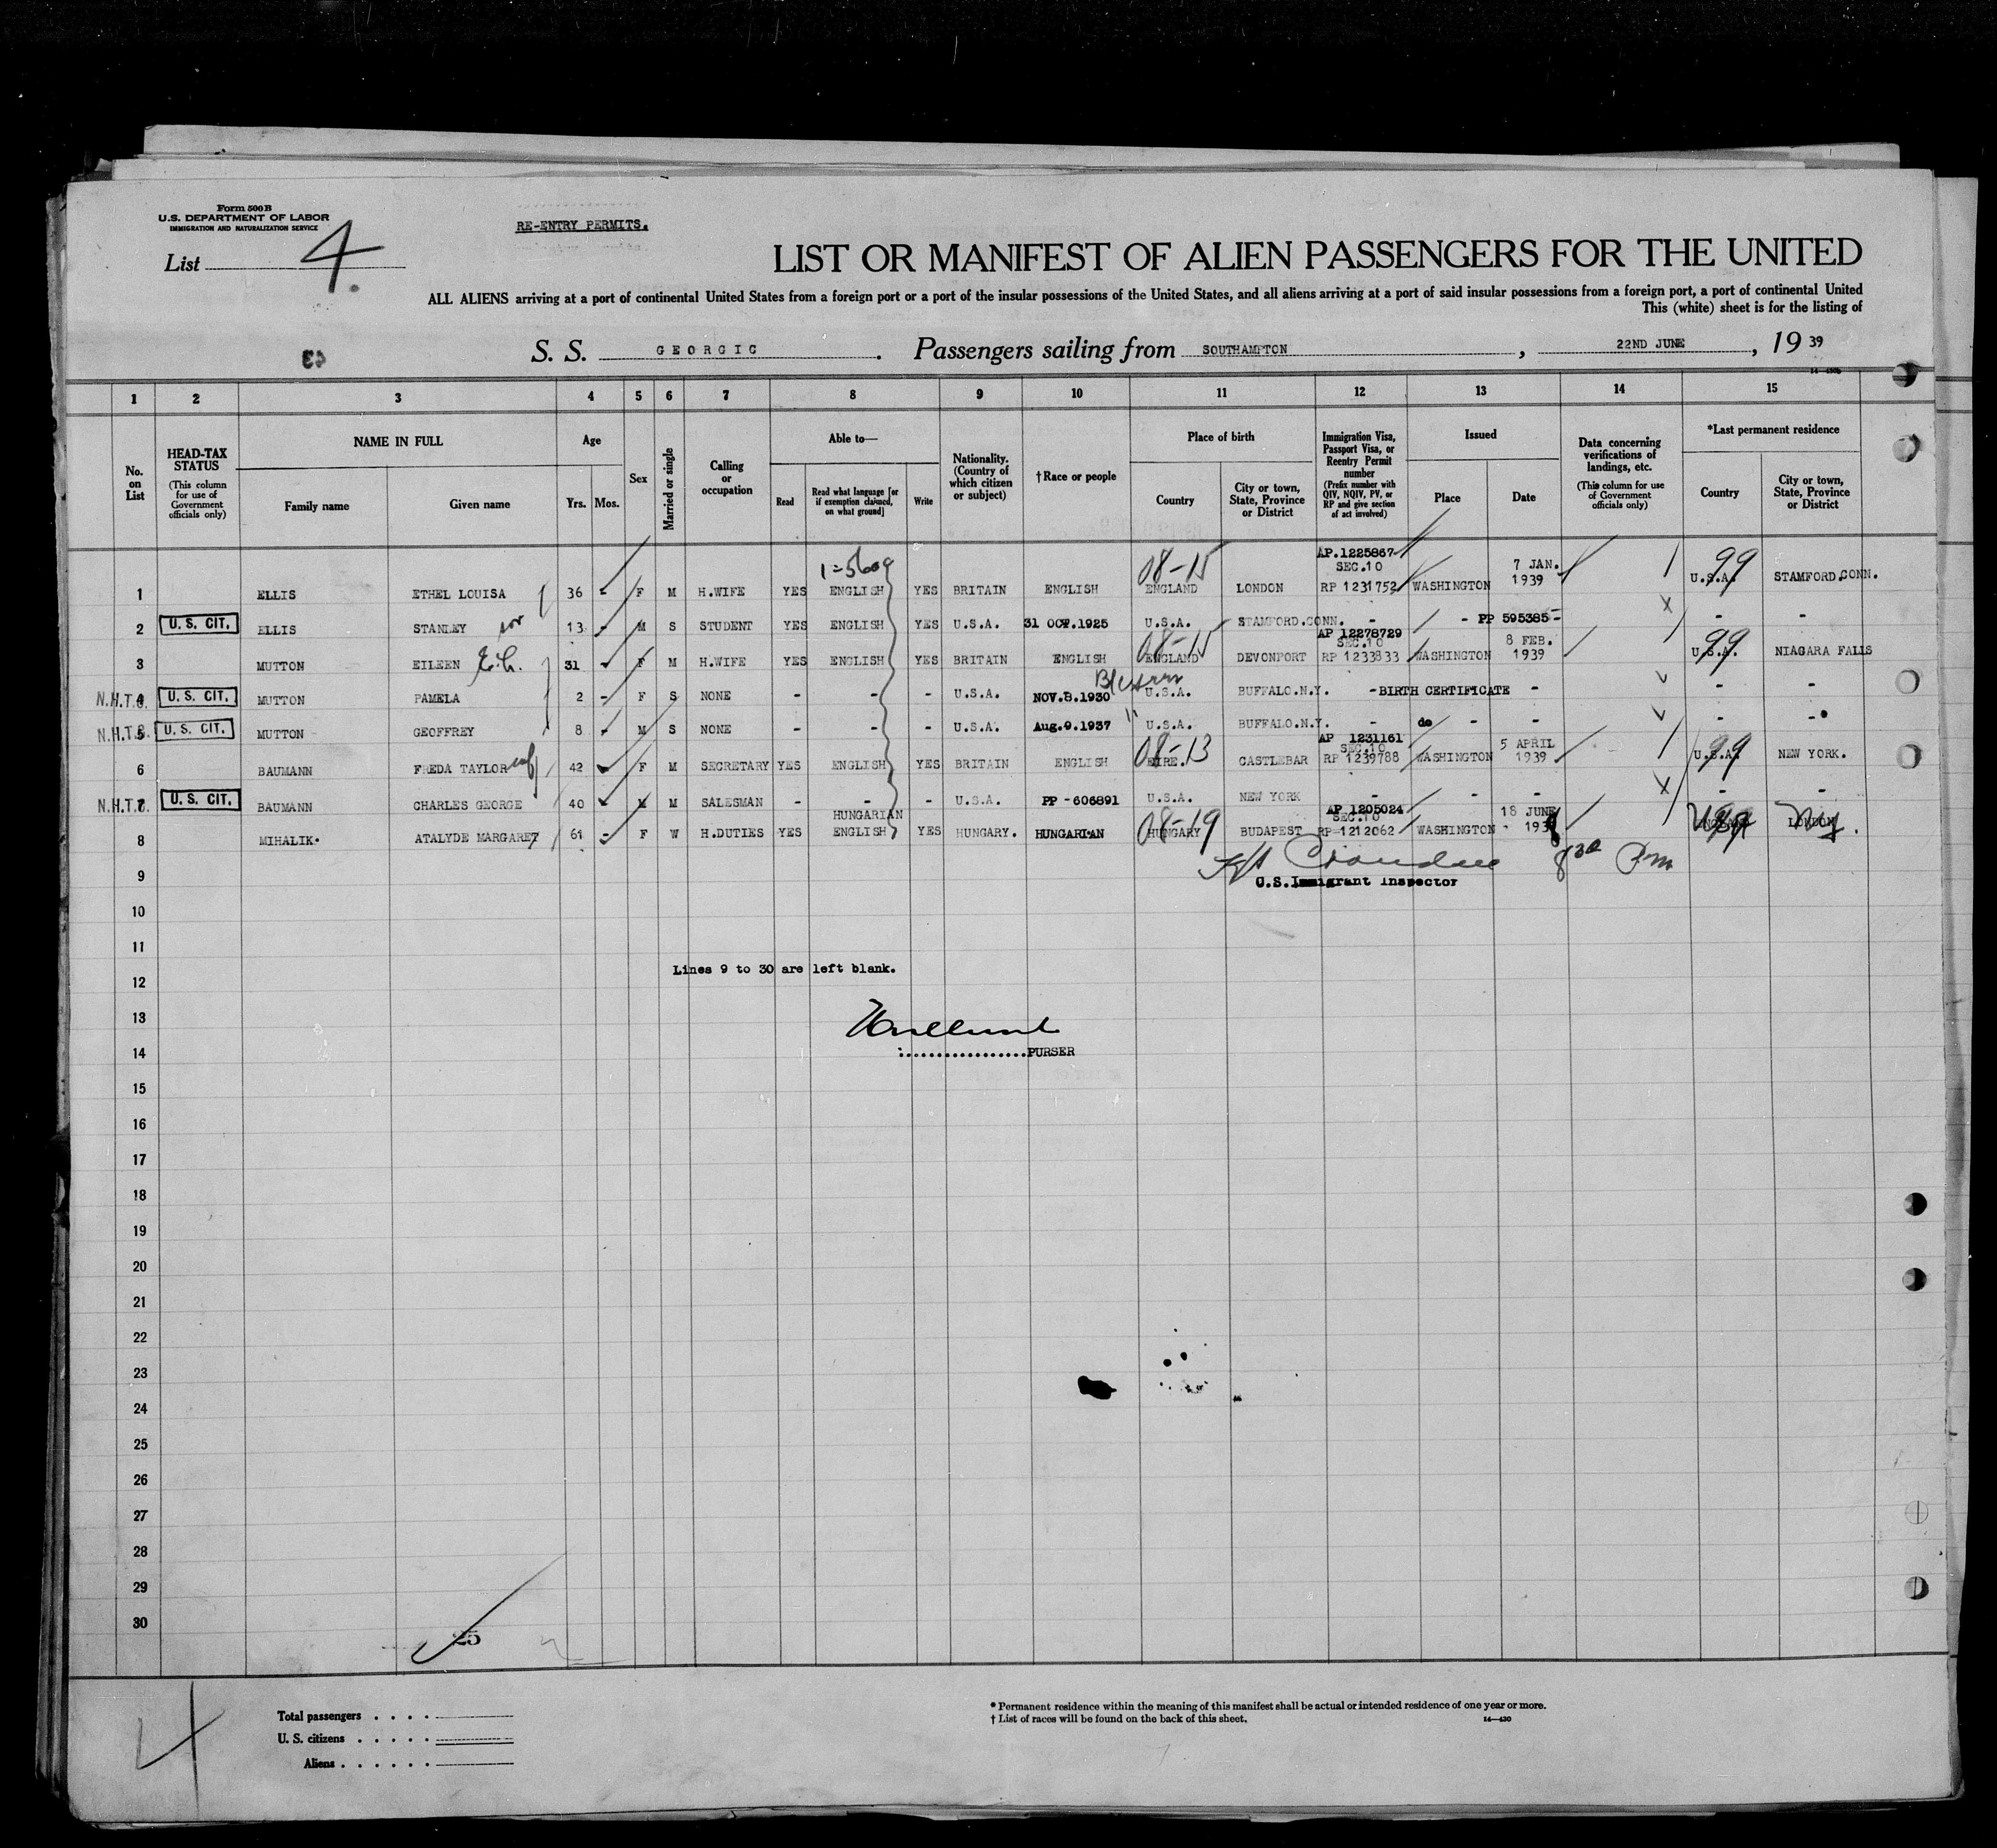 Form 500 B
U.S. DEPARTMENT OF LABOR
IMMIGRATION AND NATURALIZATION SERVICE
RE-ENTRY PERMITS.
List 4.
LIST OR MANIFEST OF ALIEN PASSENGERS FOR THE UNITED
ALL ALIENS arriving at a port of continental United States from a foreign port or a port of the insular possessions of the United States, and all aliens arriving at a port of said insular possessions from a foreign port, a port of continental United
This (white) sheet is for the listing of
43
S. S. GEORGIC. Passengers sailing from SOUTHAMPTON, 22ND JUNE, 19 39
1 2 3 4 5 6 7 8 9 10 11 12 13 14 15
No. on List
HEAD-TAX STATUS (This column for use of Government officials only)
NAME IN FULL Family name Given name
Age Yrs. Mos.
Sex
Married or single
Calling or occupation
Able to— Read Read what language [or if exemption claimed, on what ground] Write
Nationality. (Country of which citizen or subject)
†Race or people
Place of birth Country City or town, State, Province or District
Immigration Visa, Passport Visa, or Reentry Permit number (Prefix number with QIV, NQIV, PV, or RP and give section of act involved)
Issued Place Date
Data concerning verifications of landings, etc. (This column for use of Government officials only)
*Last permanent residence Country City or town, State, Province or District
08-15 AP.1225867 SEC.10 7 JAN. 99
1 ELLIS ETHEL LOUISA 36 - F M H.WIFE YES ENGLISH YES BRITAIN ENGLISH ENGLAND LONDON RP 1231752 WASHINGTON 1939 U.S.A. STAMFORD.CONN.
2 U. S. CIT. ELLIS STANLEY 13 - M S STUDENT YES ENGLISH YES U.S.A. 31 OCT.1925 U.S.A. STAMFORD.CONN. - - PP 595385 - - -
08-15 AP 12278729 SEC.10 8 FEB. 99
3 MUTTON EILEEN 31 F M H.WIFE YES ENGLISH YES BRITAIN ENGLISH ENGLAND DEVONPORT RP 1233833 WASHINGTON 1939 U.S.A. NIAGARA FALLS
N.H.T. 4 U. S. CIT. MUTTON PAMELA 2 - F S NONE - - - U.S.A. NOV.8.1930 U.S.A. BUFFALO.N.Y. - BIRTH CERTIFICATE - - -
N.H.T. 5 U. S. CIT. MUTTON GEOFFREY 8 - M S NONE - - - U.S.A. Aug.9.1937 " U.S.A. BUFFALO.N.Y. - do - - - -
08-13 AP 1231161 SEC.10 5 APRIL 99
6 BAUMANN FREDA TAYLOR 42 F M SECRETARY YES ENGLISH YES BRITAIN ENGLISH EIRE. CASTLEBAR RP 1239788 WASHINGTON 1939 U.S.A. NEW YORK.
N.H.T. 7 U. S. CIT. BAUMANN CHARLES GEORGE 40 M M SALESMAN - - - U.S.A. PP - 606891 U.S.A. NEW YORK - - - - -
HUNGARIAN 08-19 AP 1205024 SEC.10 18 JUNE
8 MIHALIK. ATALYDE MARGARET 61 - F W H.DUTIES YES ENGLISH YES HUNGARY. HUNGARIAN HUNGARY BUDAPEST RP-1212062 WASHINGTON 193 LONDON Ny.
9 U.S.Immigrant Inspector 8 30 Pm
10
11
Lines 9 to 30 are left blank.
12
13
14 PURSER
15
16
17
18
19
20
21
22
23
24
25
26
27
28
29
30
25
4
Total passengers
U. S. citizens
Aliens
* Permanent residence within the meaning of this manifest shall be actual or intended residence of one year or more.
† List of races will be found on the back of this sheet.
14—430